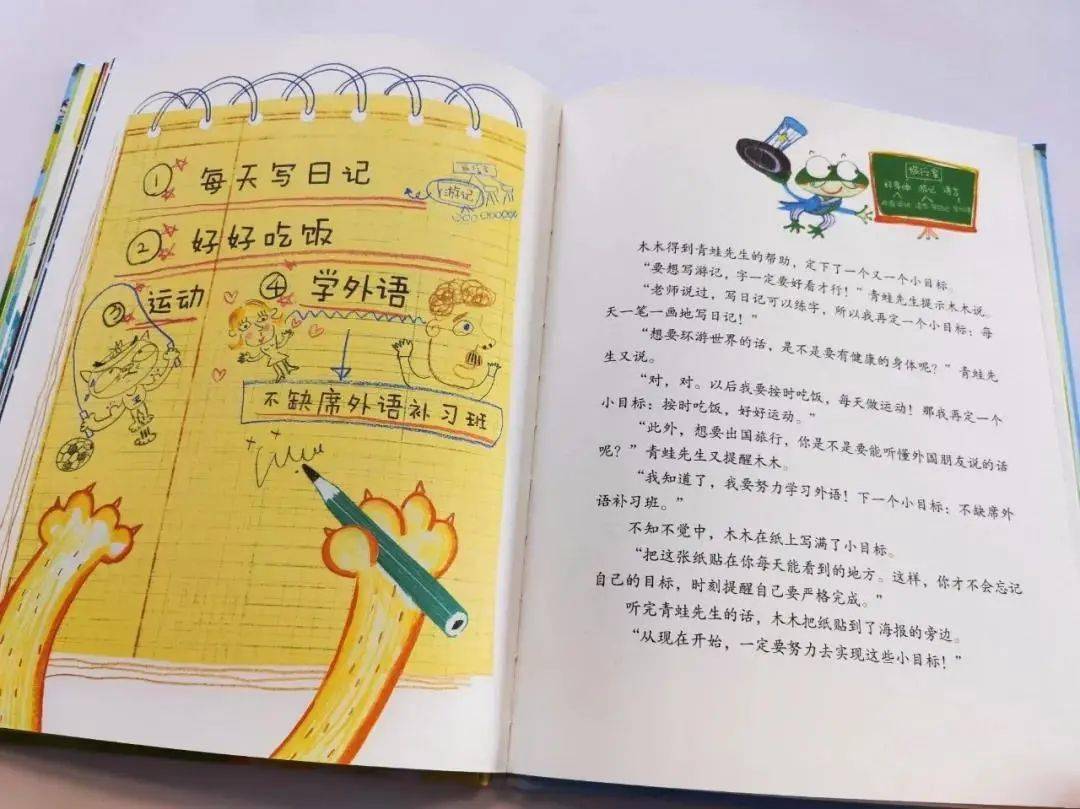 ① 每天写日记
游记
② 好好吃饭
③ 运动
④ 学外语
不缺席外语补习班
旅行家
游记
木木得到青蛙先生的帮助，定下了一个又一个小目标。
“要想写游记，字一定要好看才行！”青蛙先生提示木木说。
“老师说过，写日记可以练字，所以我再定一个小目标：每
天一笔一画地写日记！”
“想要环游世界的话，是不是要有健康的身体呢？”青蛙先
生又说。
“对，对。以后我要按时吃饭，每天做运动！那我再定一个
小目标：按时吃饭，好好运动。”
“此外，想要出国旅行，你是不是要能听懂外国朋友说的话
呢？”青蛙先生又提醒木木。
“我知道了，我要努力学习外语！下一个小目标：不缺席外
语补习班。”
不知不觉中，木木在纸上写满了小目标。
“把这张纸贴在你每天能看到的地方。这样，你才不会忘记
自己的目标，时刻提醒自己要严格完成。”
听完青蛙先生的话，木木把纸贴到了海报的旁边。
“从现在开始，一定要努力去实现这些小目标！”